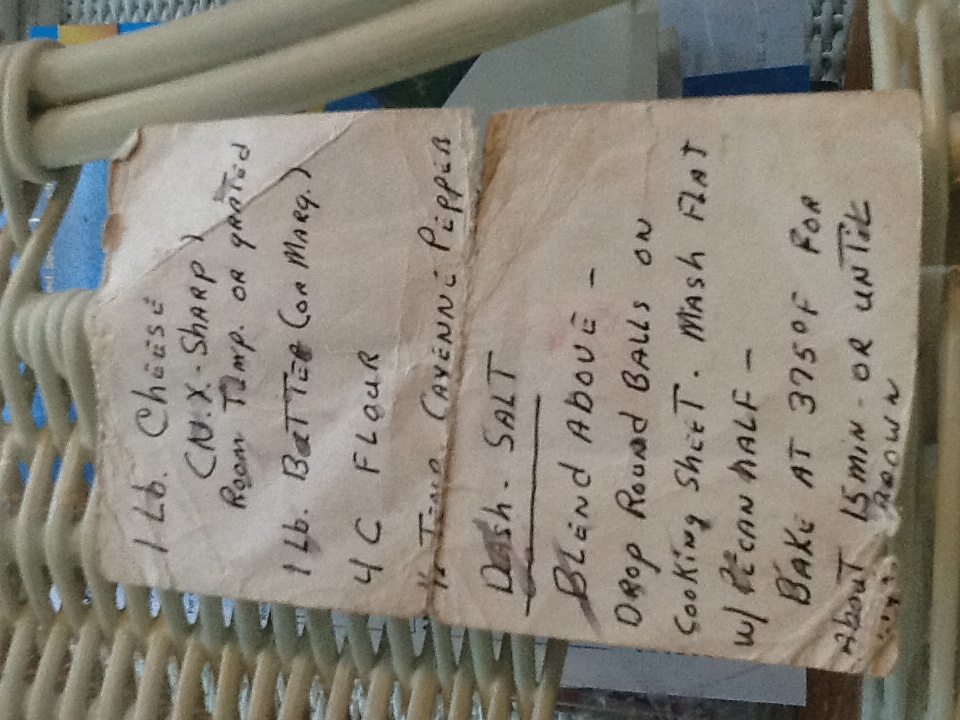 1 Lb. Cheese
(N.Y.-SHARP)
Room Temp. OR grated
1 Lb. BuTTER (OR MARG.)
4 C FLOUR
TEASP CAYENNE PEPPER
DASh - SALT
BLEND ABOVE -
DROP ROUND BALLS ON
COOKING SHEET. MASH FLAT
W/ PECAN HALF -
BAKE AT 375°F FOR
AbOUT 15 MIN - OR UNTIL
BROWN